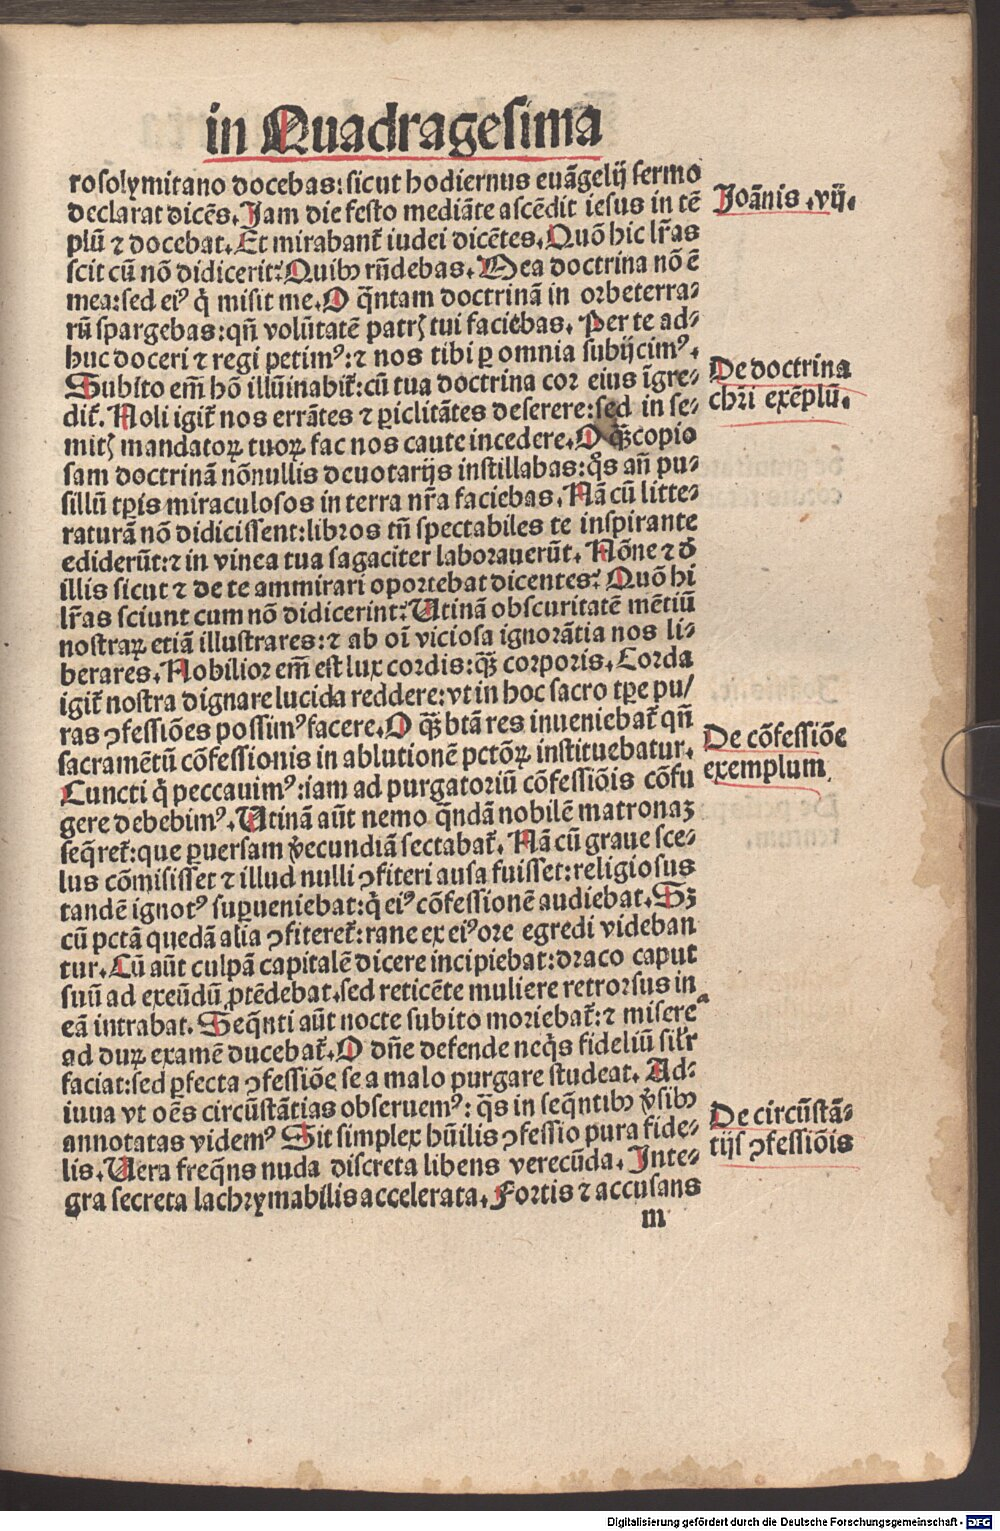 in Quadragesima
rosolymitano docebas: sicut hodiernus euãgelij sermo
declarat dicẽs. Jam die festo mediãte ascẽdit iesus in tẽ
plũ ⁊ docebat. Et mirabant̃ iudei dicẽtes. Quõ hic lr̃as
scit cũ nõ didicerit? Quibꝰ rñdebas. Mea doctrina nõ ẽ
mea: sed eiꝰ q̇ misit me. O q̃ntam doctrinã in orbeterra⸗
rũ spargebas: qñ volũtatẽ patrꝭ tui faciebas. Per te ad⸗
huc doceri ⁊ regi petimꝰ: ⁊ nos tibi ꝑ omnia subijcimꝰ.
Subito em̃ hõ illũinabit̃: cũ tua doctrina cor eius ĩgre⸗
dit̃. Noli igit̃ nos errãtes ⁊ ꝑiclitãtes deserere: sed in se⸗
mitꝭ mandatoꝝ tuoꝝ fac nos caute incedere. O q̃ꝫ copio
sam doctrinã nõnullis deuotarijs instillabas: q̊s añ pu⸗
sillũ tꝑis miraculosos in terra nr̃a faciebas. Nã cũ litte⸗
raturã nõ didicissent: libros tñ spectabiles te inspirante
ediderũt: ⁊ in vinea tua sagaciter laborauerũt. Nõne ⁊ đ
illis sicut ⁊ de te ammirari oportebat dicentes? Quõ hi
lr̃as sciunt cum nõ didicerint? Utinã obscuritatẽ mẽtiũ
nostraꝝ etiã illustrares: ⁊ ab oĩ viciosa ignorãtia nos li⸗
berares. Nobilior em̃ est lux cordis: q̃ꝫ corporis. Corda
igit̃ nostra dignare lucida reddere: vt in hoc sacro tꝑe pu/
ras ꝯfessiões possimꝰ facere. O q̃ꝫ btã res inueniebat̃ qñ
sacramẽtũ cõfessionis in ablutionẽ pctõꝝ instituebatur.
Cuncti q̇ peccauimꝰ: iam ad purgatoriũ cõfessiõis cõfu
gere debebimꝰ. Utinã aũt nemo q̃ndã nobilẽ matronaꝫ
seq̃ret̃: que ꝑuersam v̾ecundiã sectabat̃. Nã cũ graue sce⸗
lus cõmisisset ⁊ illud nulli ꝯfiteri ausa fuisset: religiosus
tandẽ ignotꝰ suꝑueniebat: q̇ eiꝰ cõfessionẽ audiebat. Sꝫ
cũ pctã quedã alia ꝯfiteret̃: rane ex eiꝰ ore egredi videban
tur. Cũ aũt culpã capitalẽ dicere incipiebat: draco caput
suũ ad exeũdũ ꝓtẽdebat. sed reticẽte muliere retrorsus in
eã intrabat. Seq̃nti aũt nocte subito moriebat̃: ⁊ misere
ad duꝝ examẽ ducebat̃. O dñe defende neq̇s fideliũ sil̃r
faciat: sed ꝑfecta ꝯfessiõe se a malo purgare studeat. Ad⸗
iuua vt oẽs circũstãtias obseruemꝰ: q̃s in seq̃ntibꝰ v̾sibꝰ
annotatas videmꝰ Sit simplex hũilis ꝯfessio pura fide⸗
lis. Uera freq̃ns nuda discreta libens verecũda. Inte⸗
gra secreta lachrymabilis accelerata. Fortis ⁊ accusans
m
Joãnis .vij.
De doctrina
chr̃i exẽplũ.
De cõfessiõe
exemplum.
De circũstã⸗
tijs ꝯfessiõis
Digitalisierung gefördert durch die Deutsche Forschungsgemeinschaft - DFG